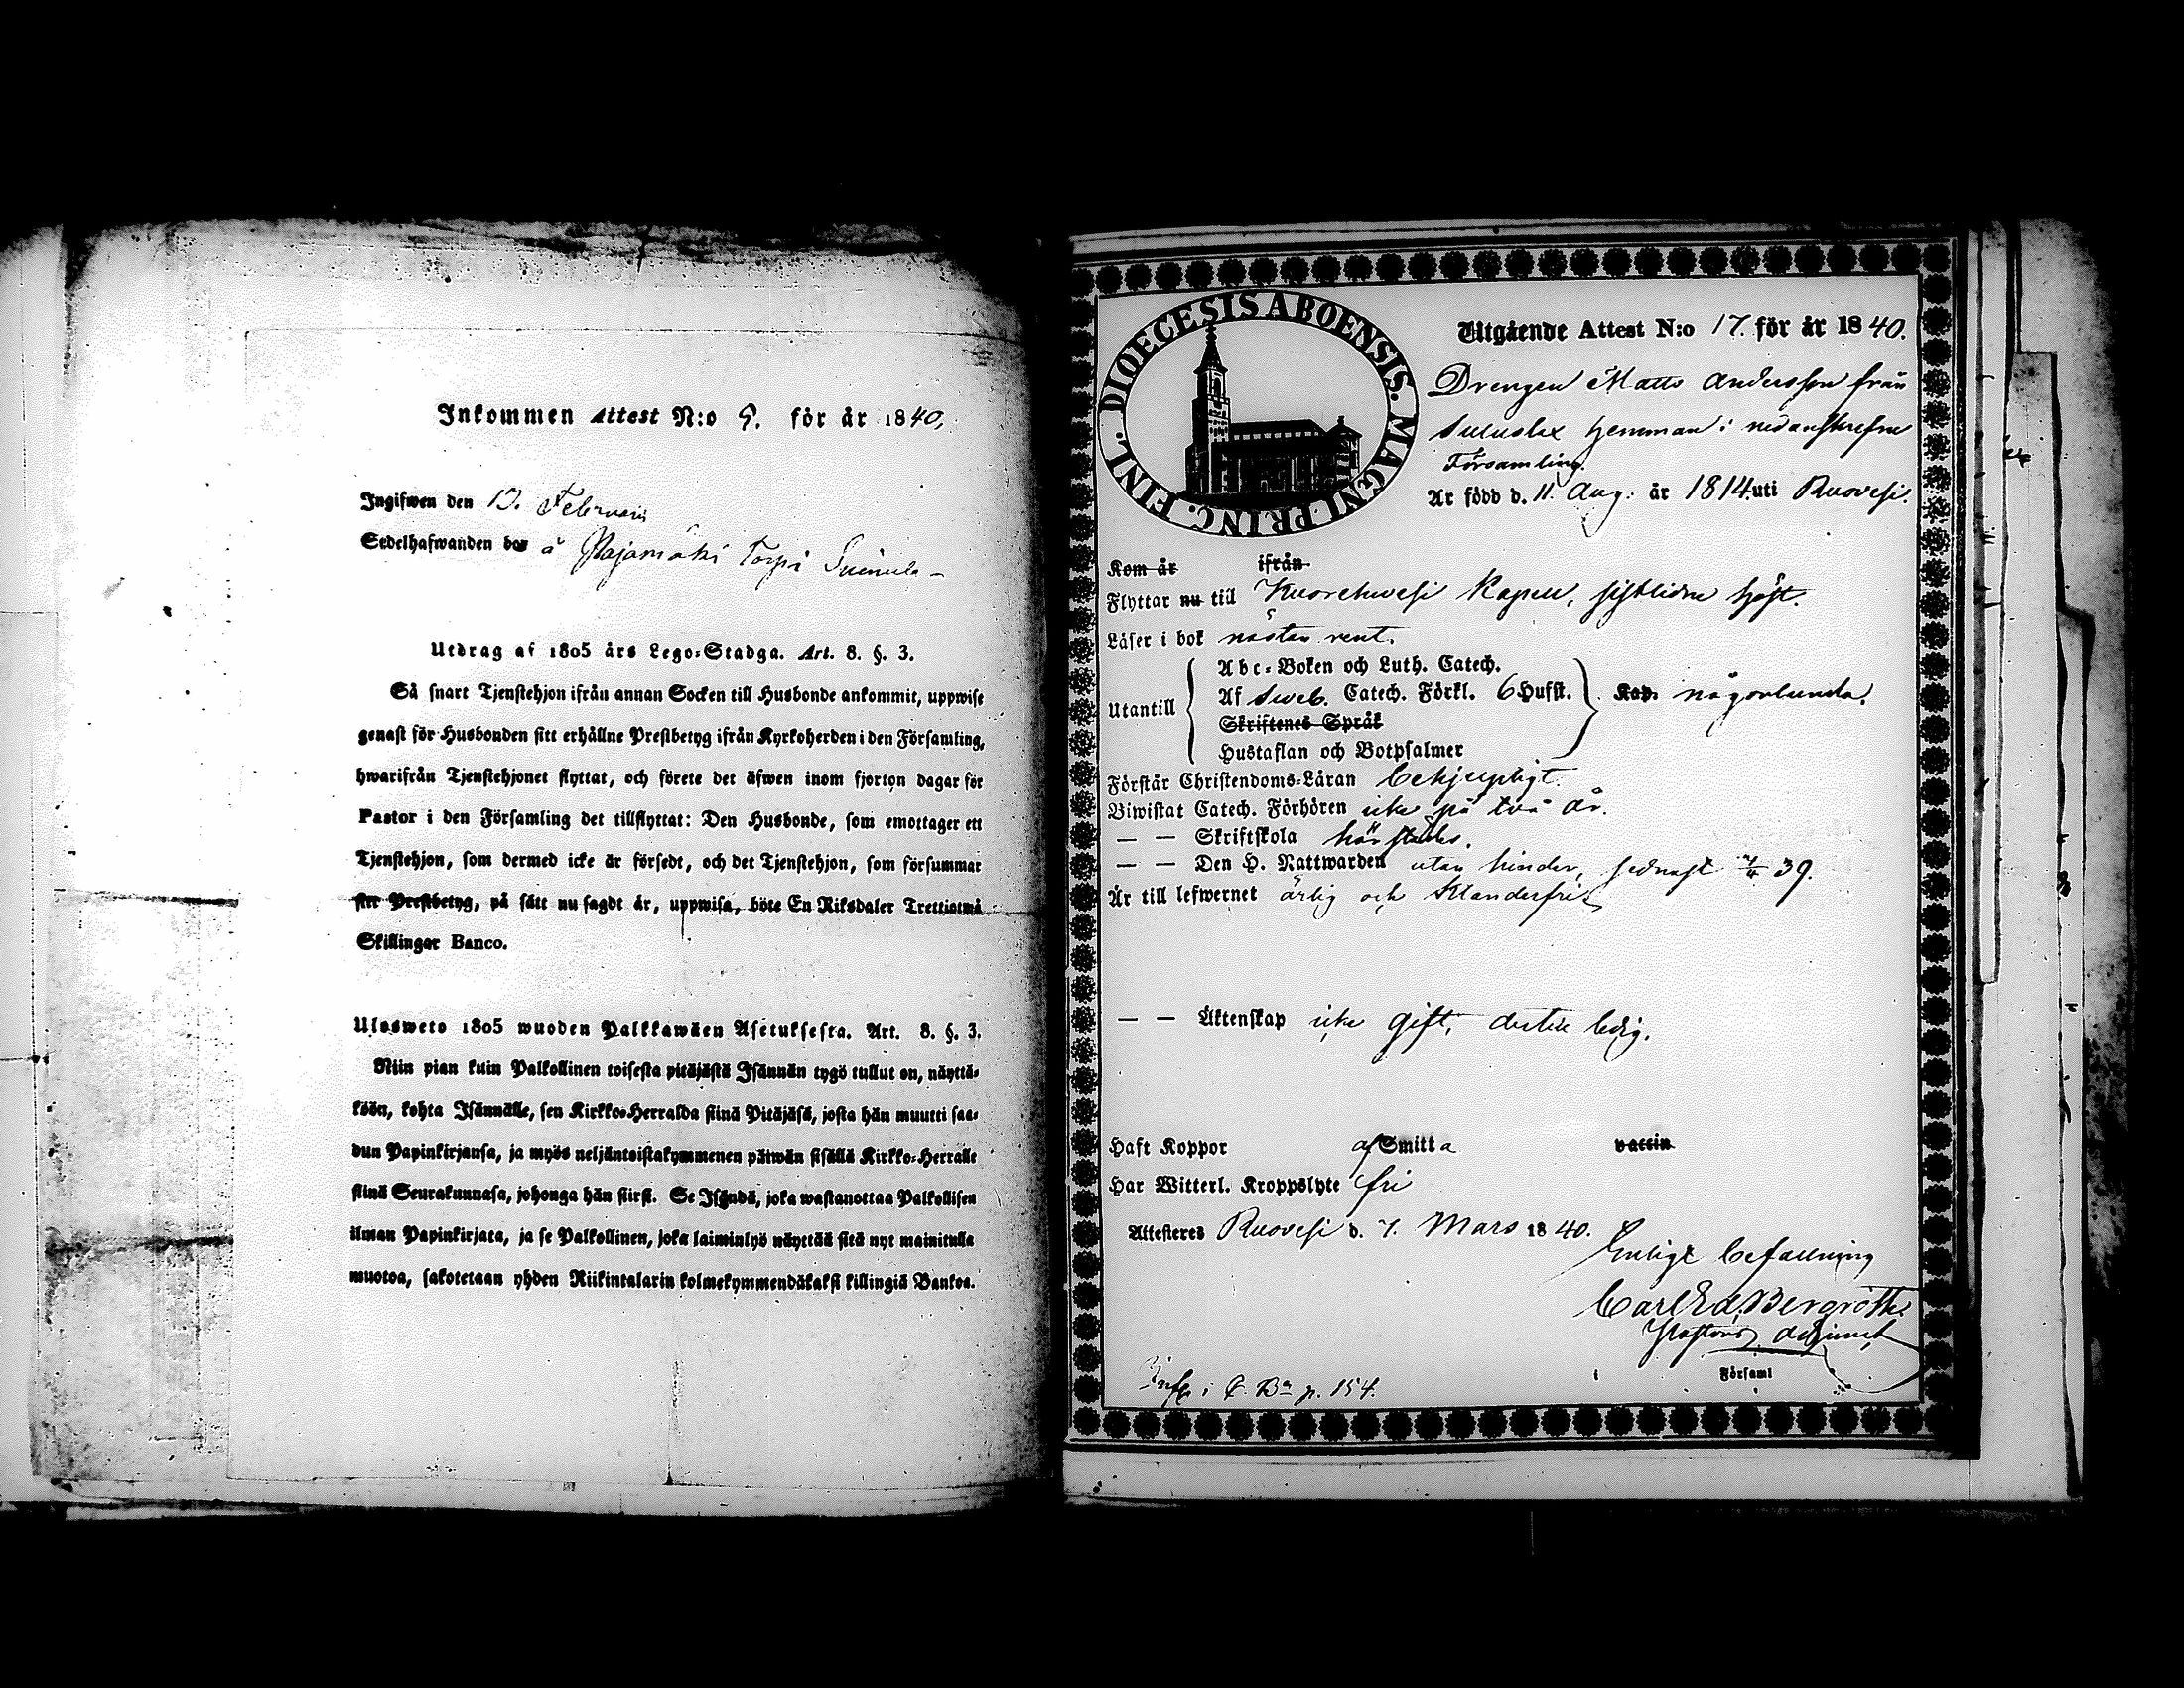 Inkommen Attest N:o 9. för år 1840,
Ingifwen den 13. Februarii
Sedelhafwanden bor å Pajamäki Torp i
Utdrag af 1805 års Lego-Stadga. Art. 8. §. 3.
Så snart Tjenstehjon ifrån annan Socken till Husbonde ankommit, uppwise
genast för Husbonden sitt erhållne Prestbetyg ifrån Kyrkoherden i den Församling,
hwarifrån Tjenstehjonet flyttat, och förete det äfwen inom fjorton dagar för
Pastor i den Församling det tillflyttat: Den Husbonde, som emottager ett
Tjenstehjon, som dermed icke är försedt, och det Tjenstehjon, som försummar
sitt Prestbetyg, på sätt nu sagdt är, uppwisa, böte En Riksdaler Trettiotwå
Skillingar Banco.
Ulosweto 1805 wuoden Palkkawäen Asetuksesta. Art. 8. §. 3.
Niin pian kuin Palkollinen toisesta pitäjästä Isännän tygö tullut on, näyttä-
köön, kohta Isännälle, sen Kirkko-Herralda siinä Pitäjäsä, josta hän muutti saa-
dun Papinkirjansa, ja myös neljäntoistakymmenen päiwän sisällä Kirkko-Herralle
siinä Seurakunnasa, johonga hän siirsi. Se Isändä, joka wastanottaa Palkollisen
ilman Papinkirjata, ja se Palkollinen, joka laiminlyö näyttää sitä nyt mainitulla
muotoa, sakotetaan yhden Riikintalarin kolmekymmendäkaksi killingiä Bankoa.
DIOECESIS ABOENSIS. MAGNI PRINC. FINL.
Utgående Attest N:o 17. för år 1840.
Drengen Matts Andersson från
hemman i nedanskrefne
Församling.
Är född d. 11. Aug: år 1814 uti Ruovesi.
Kom år ifrån
Flyttar nu till Kuorehwesi Kapell, sistlidne höst.
Läser i bok nästan rent.
Abc-Boken och Luth. Catech.
Utantill Af Sweb. Catech. Förkl. 6 Hufst. Kap. någorlunda.
Skriftenes Språk
Hustaflan och Botpsalmer
Förstår Christendoms-Läran behjelpligt.
Biwistat Catech. Förhören icke på två år.
— — Skriftskola härstädes.
— — Den H. Nattwarden utan hinder, sednast 39.
Är till lefwernet ärlig och klanderfri
— — Äktenskap icke gift, dertill ledig.
Haft Koppor af Smitta vaccin
Har Witterl. Kroppslyte fri
Attesteres Ruovesi d. 7. Mars 1840.
Enligt befallning
Carl Ed. Bergroth.
Pastors adjunct
Församl
i C. B. p. 154.